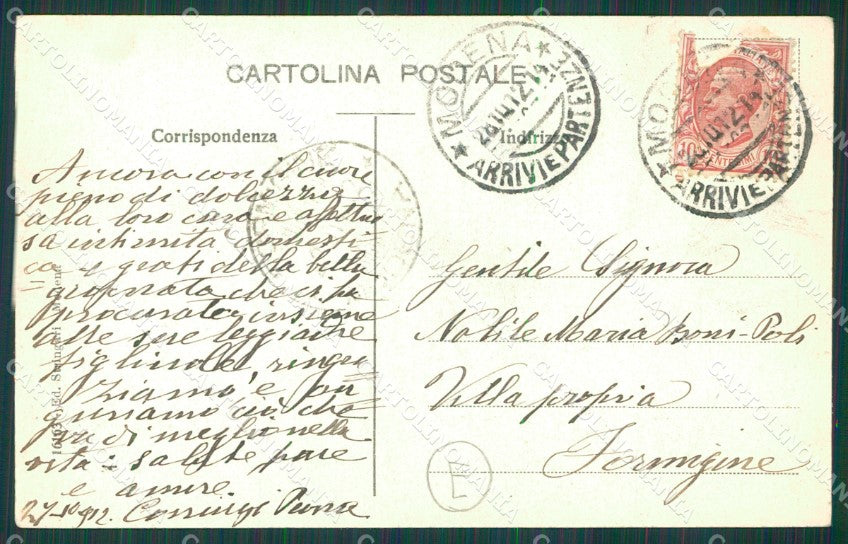 CARTOLINA POSTALE
Corrispondenza
Indirizzo
MODENA
28.10.12.14
ARRIVI E PARTENZE
MODENA
28.10.12.14
ARRIVI E PARTENZE
Ancora con il cuore
pieno di dolcezza
alla loro cara e affettuo
sa intimità domesti
ca e grati della bella
giornata che ci ha
procurato insieme
alle sue leggiadre
figliuole ringra
ziamo e au
guriamo ciò che
di meglio nella
vita: salute pace
e amore
27-10-912.
Gentile Signora
Nobile Maria Boni-Poli
Villa propria
Formigine
CARTOLINOMANIA